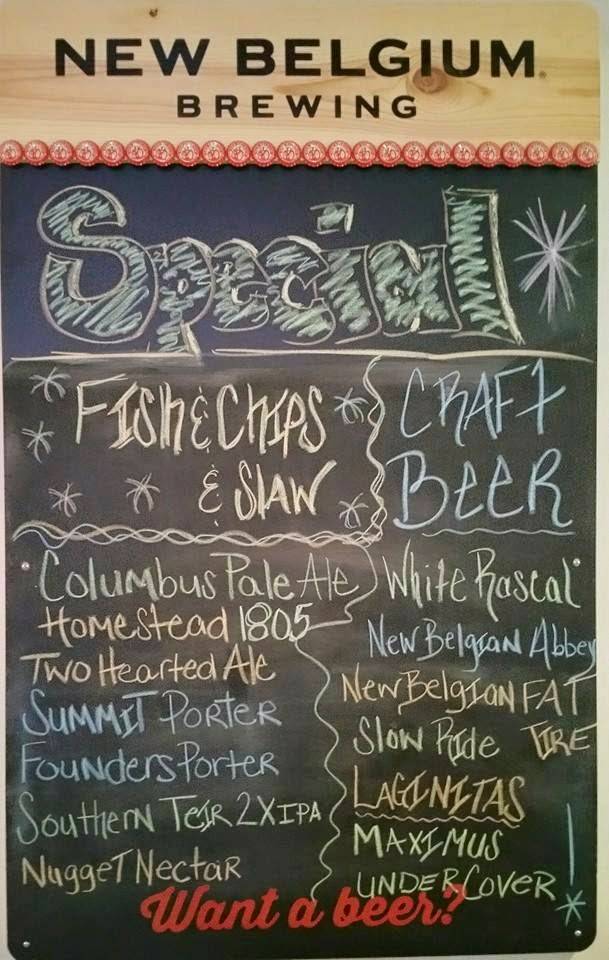 NEW BELGIUM
BREWING
Special
FISH & CHIPS
& SLAW
CRAFT
BEER
Columbus Pale Ale
Homestead 1805
Two Hearted Ale
SUMMIT PORTER
Founders Porter
Southern Teir 2X IPA
Nugget Nectar
White Rascal
New Belgian Abbey
New Belgian FAT
TIRE
Slow Ride
LAGINITAS
MAXIMUS
UNDERCOVER
Want a beer?